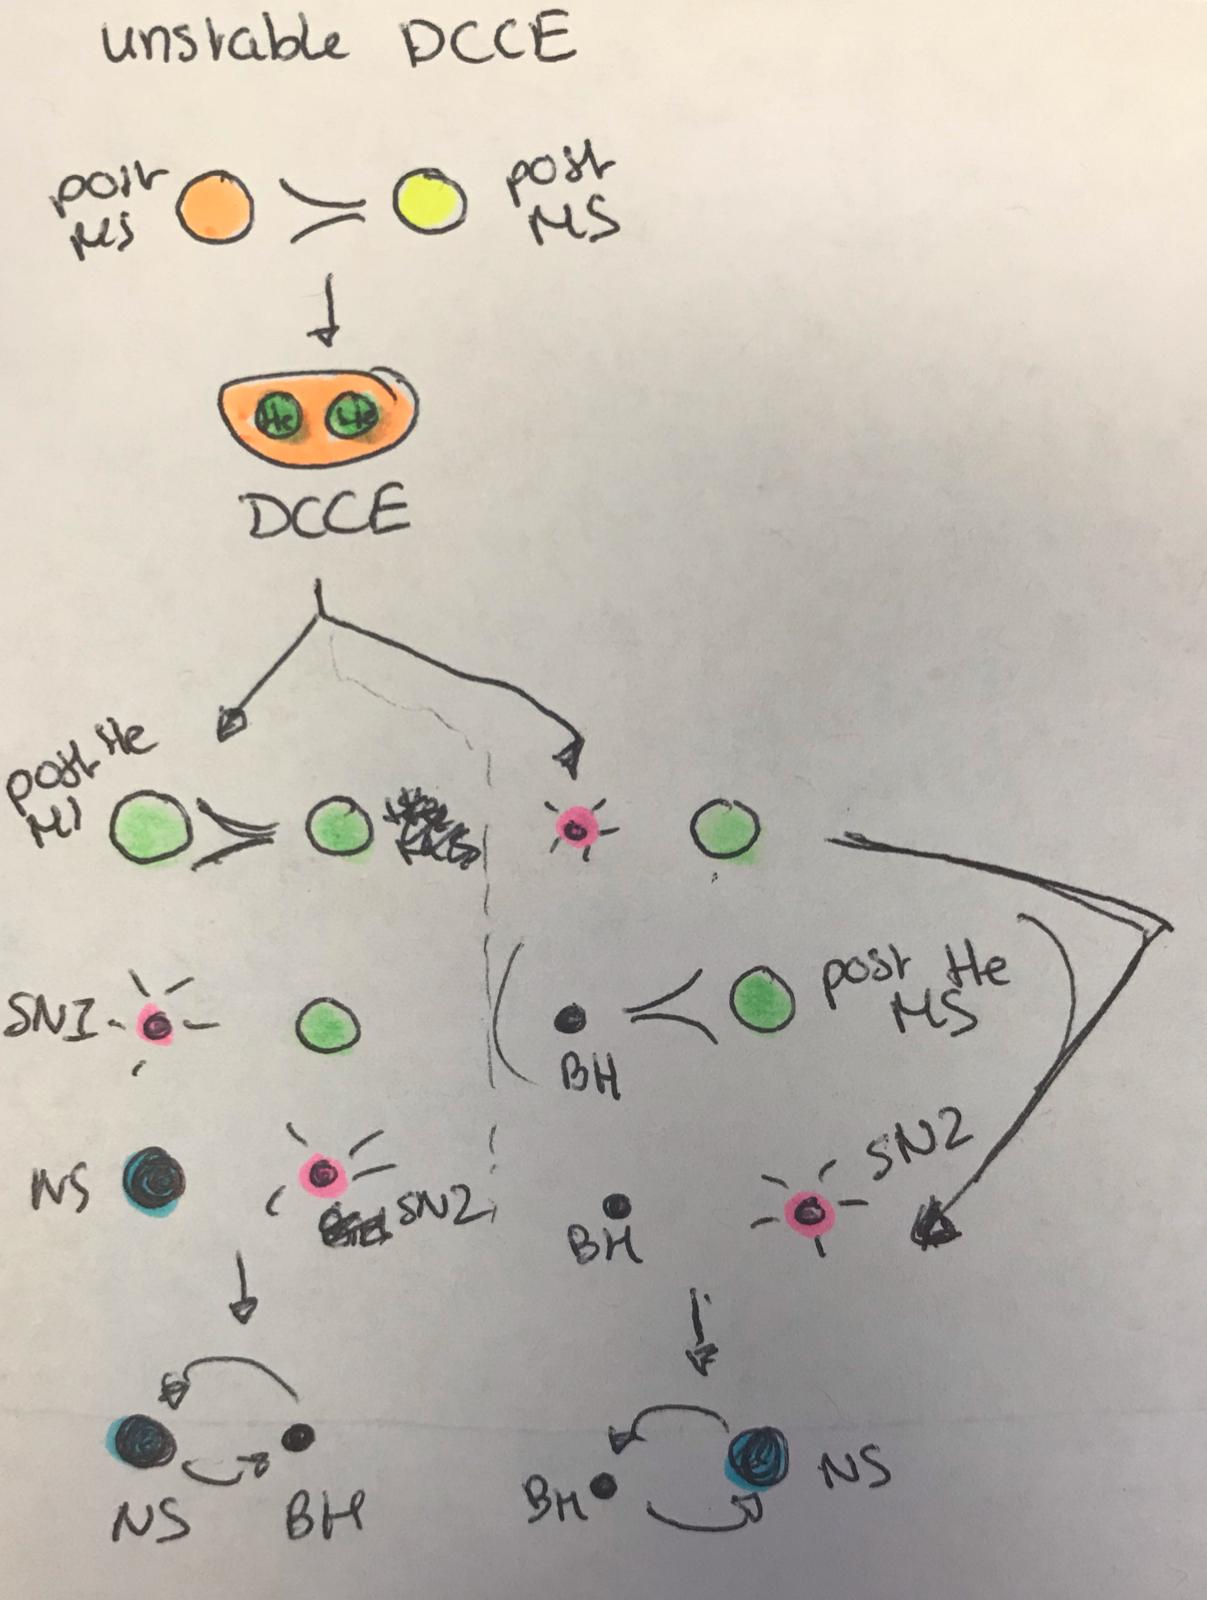 unstable DCCE
post
MS
post
MS
He He
DCCE
post He
MS
SN1
post He
MS
BH
NS
SN2
BH
SN2
NS BH
BH NS